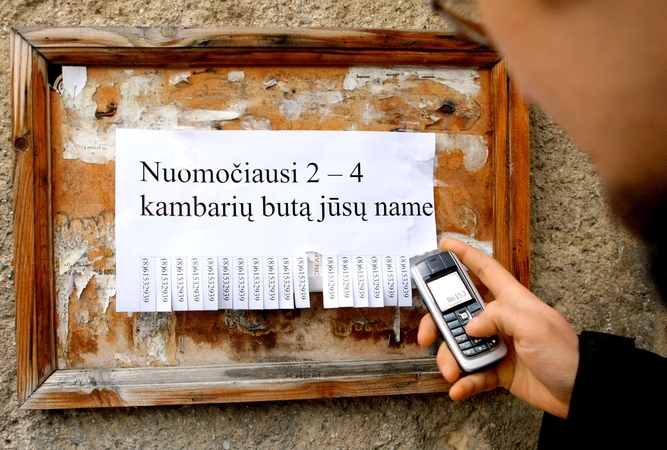 Nuomočiausi 2 – 4
kambarių butą jūsų name
(8)61532939
(8)61532939
(8)61532939
(8)61532939
(8)61532939
(8)61532939
(8)61532939
(8)61532939
(8)61532939
(8)61532939
(8)61532939
(8)61532939
(8)61532939
(8)61532939
(8)61532939
(8)61532939
(8)61532939
86153